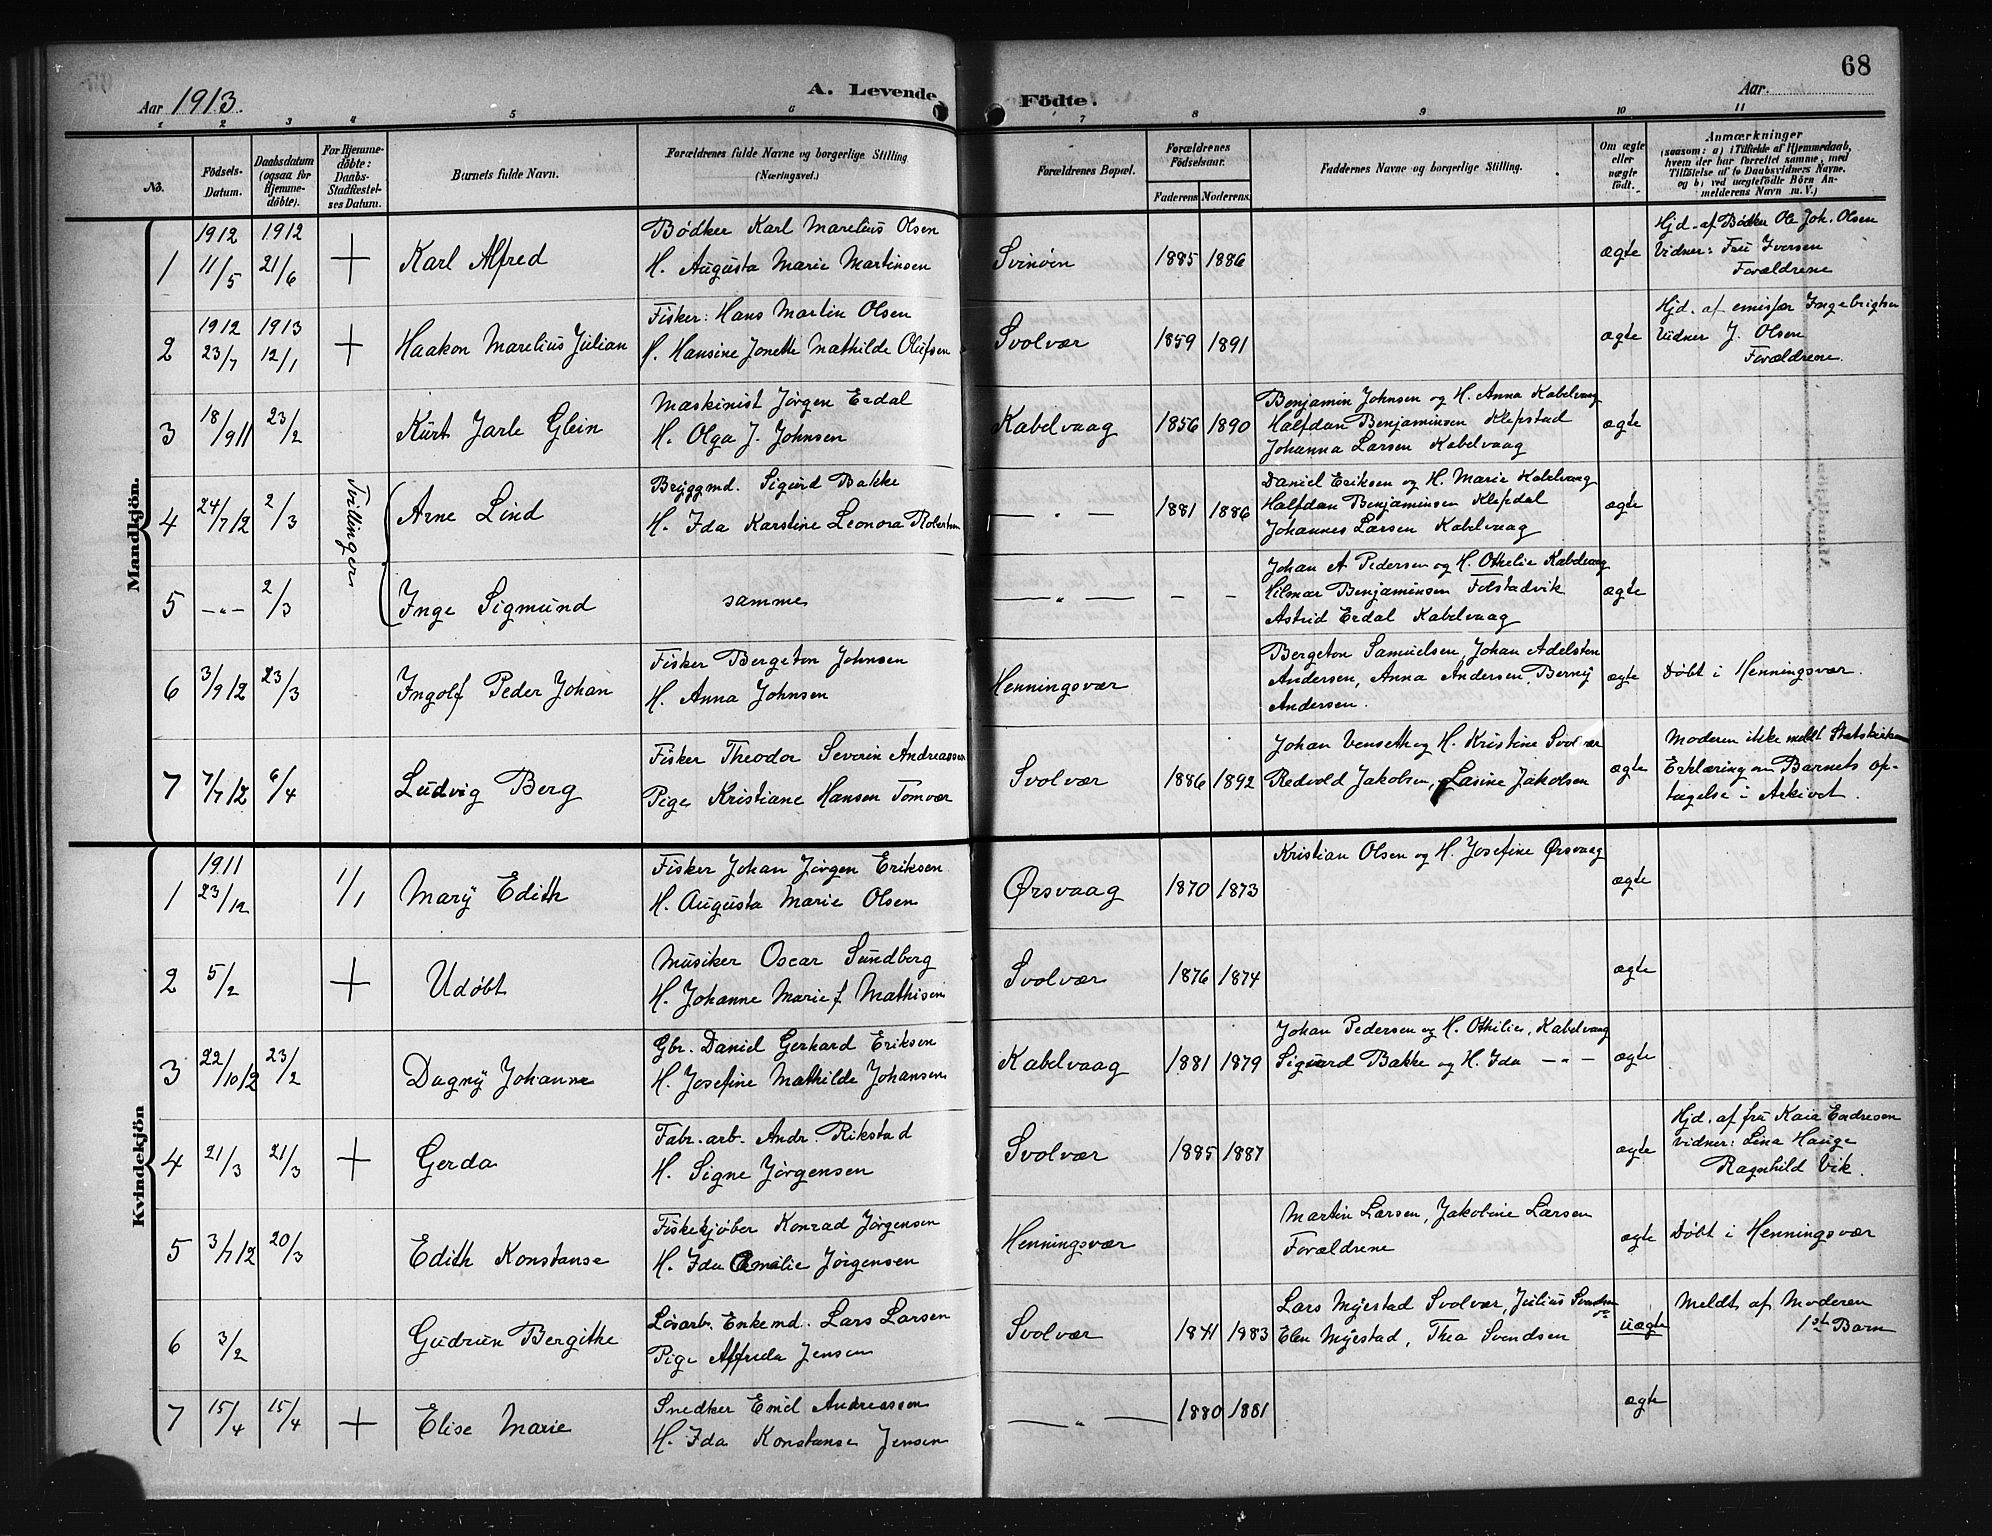 68
Aar 1913.
A. Levende Födte.
Aar.
1 2 3 4 5 6 7 8 9 10 11
No.
Födsels-Datum.
Daabsdatum (ogsaa for Hjemme-döbte).
For Hjemme-döbte: Daabs-Stadfæstel-ses Datum.
Barnets fulde Navn.
Forældrenes fulde Navne og borgerlige Stilling (Næringsvei.)
Forældrenes Bopæl.
Forældrenes Födselsaar.
Faderens Moderens
Faddernes Navne og borgerlige Stilling.
Om ægte eller uægte födt.
Anmærkninger
(saasom: a) i Tilfælde af Hjemmedaab, hvem der har forrettet samme, med Tilföielse af to Daabsvidners Navne, og b) ved uægtefödte Börn An-melderens Navn m. V.)
Mandkjön.
1 1912 11/5 1912 21/6 + Karl Alfred
Bødker Karl Marelius Olsen
H. Augusta Marie Martinsen
Svinøen 1885 1886 ægte
Hjd. af Bødker Ole Joh. Olsen
Vidner: Fru Iversen
Forældrene
2 1912 23/7 1913 12/1 + Haakon Marelius Julian
Fisker: Hans Martin Olsen
H. Hansine Jonette Mathilde Olufsen
Svolvær 1859 1891 ægte
Hjd. af emisfær Ingebrigtsen
Vidner J. Olsen
Forældrene.
3 18/9 11 23/2 Kurt Jarle Glein
Maskinist Jørgen Erdal
H. Olga J. Johnsen
Kabelvaag 1856 1890
Benjamin Johnsen og H. Anna Kabelvaag
Halfdan Benjaminsen Klepstad
Johanna Larsen Kabelvaag
ægte
4 24/7 12 2/3 Tvillinger Arne Lind
Bryggmd. Sigurd Bakke
H. Ida Karstine Leonora
— " — 1881 1886
Daniel Eriksen og H. Marie Kabelvaag
Halfdan Benjaminsen Klepdal
Johannes Larsen Kabelvaag
ægte
5 —"— 2/3 Inge Sigmund
samme
— " — – –
Johan A Pedersen og H. Othelie Kabelvaag
Hilmar Benjaminsen Folstadvik
Astrid Erdal Kabelvaag
ægte
6 3/9 12 23/3 Ingolf Peder Johan
Fisker Bergeton Johnsen
H. Anna Johnsen
Henningsvær
Bergeton Samuelsen, Johan Adelsten
Andersen, Anna Andersen, Berny
Andersen.
ægte
Døbt i Henningsvær.
7 7/7 12 6/4 Ludvig Berg
Fisker Theodor Severin Andreassen
Pige Kristiane Hansen Tomvær
Svolvær 1886 1892
Johan Venseth og H. Kristine Svolvær
Redvold Jakobsen, Lasine Jakobsen
ægte
Moderen ikke meldt Statskirken
Erklæring om Barnets op-
tagelse i Arkivet.
Kvindekjön
1 1911 23/12 1/1 Mary Edith
Fisker Johan Jørgen Eriksen
H. Augusta Marie Olsen
Ørsvaag 1870 1873
Kristian Olsen og H. Josefine Ørsvaag
ægte
2 5/2 + Udøbt
Musiker Oscar Sundberg
H. Johanne Marie f. Mathisen
Svolvær 1876 1874 ægte
3 22/10 12 23/2 Dagny Johanne
Gbr. Daniel Gerhard Eriksen
H. Josefine Mathilde Johansen
Kabelvaag 1881 1879
Johan Pedersen og H. Othilie, Kabelvaag
Sigurd Bakke og H. Ida — " —
ægte
4 21/3 21/3 + Gerda
Fabr. arb. Andr. Rikstad
H. Signe Jørgensen
Svolvær 1885 1887 ægte
Hjd. af fru Kaia Endresen
vidner: Lina Hauge
Ragnhild Vik.
5 3/7 12 20/3 Edith Konstanse
Fiskekjøber Konrad Jørgensen
H. Ida Amalie Jørgensen
Henningsvær
Martin Larsen, Jakobine Larsen
Forældrene
ægte
Døbt i Henningsvær
6 3/2 Gudrun Bergithe
Løsarb. Enkemd. Lars Larsen
Pige Alfrida Jensen
Svolvær 1841 1883
Lars Myestad Svolvær, Julius Svendsen
Elen Myestad, Thea Svendsen
uægte
Meldt af Moderen
1ste Barn
7 15/4 15/4 + Elise Marie
Snedker Emil Andreassen
H. Ida Konstanse Jensen
— " — 1880 1881 ægte